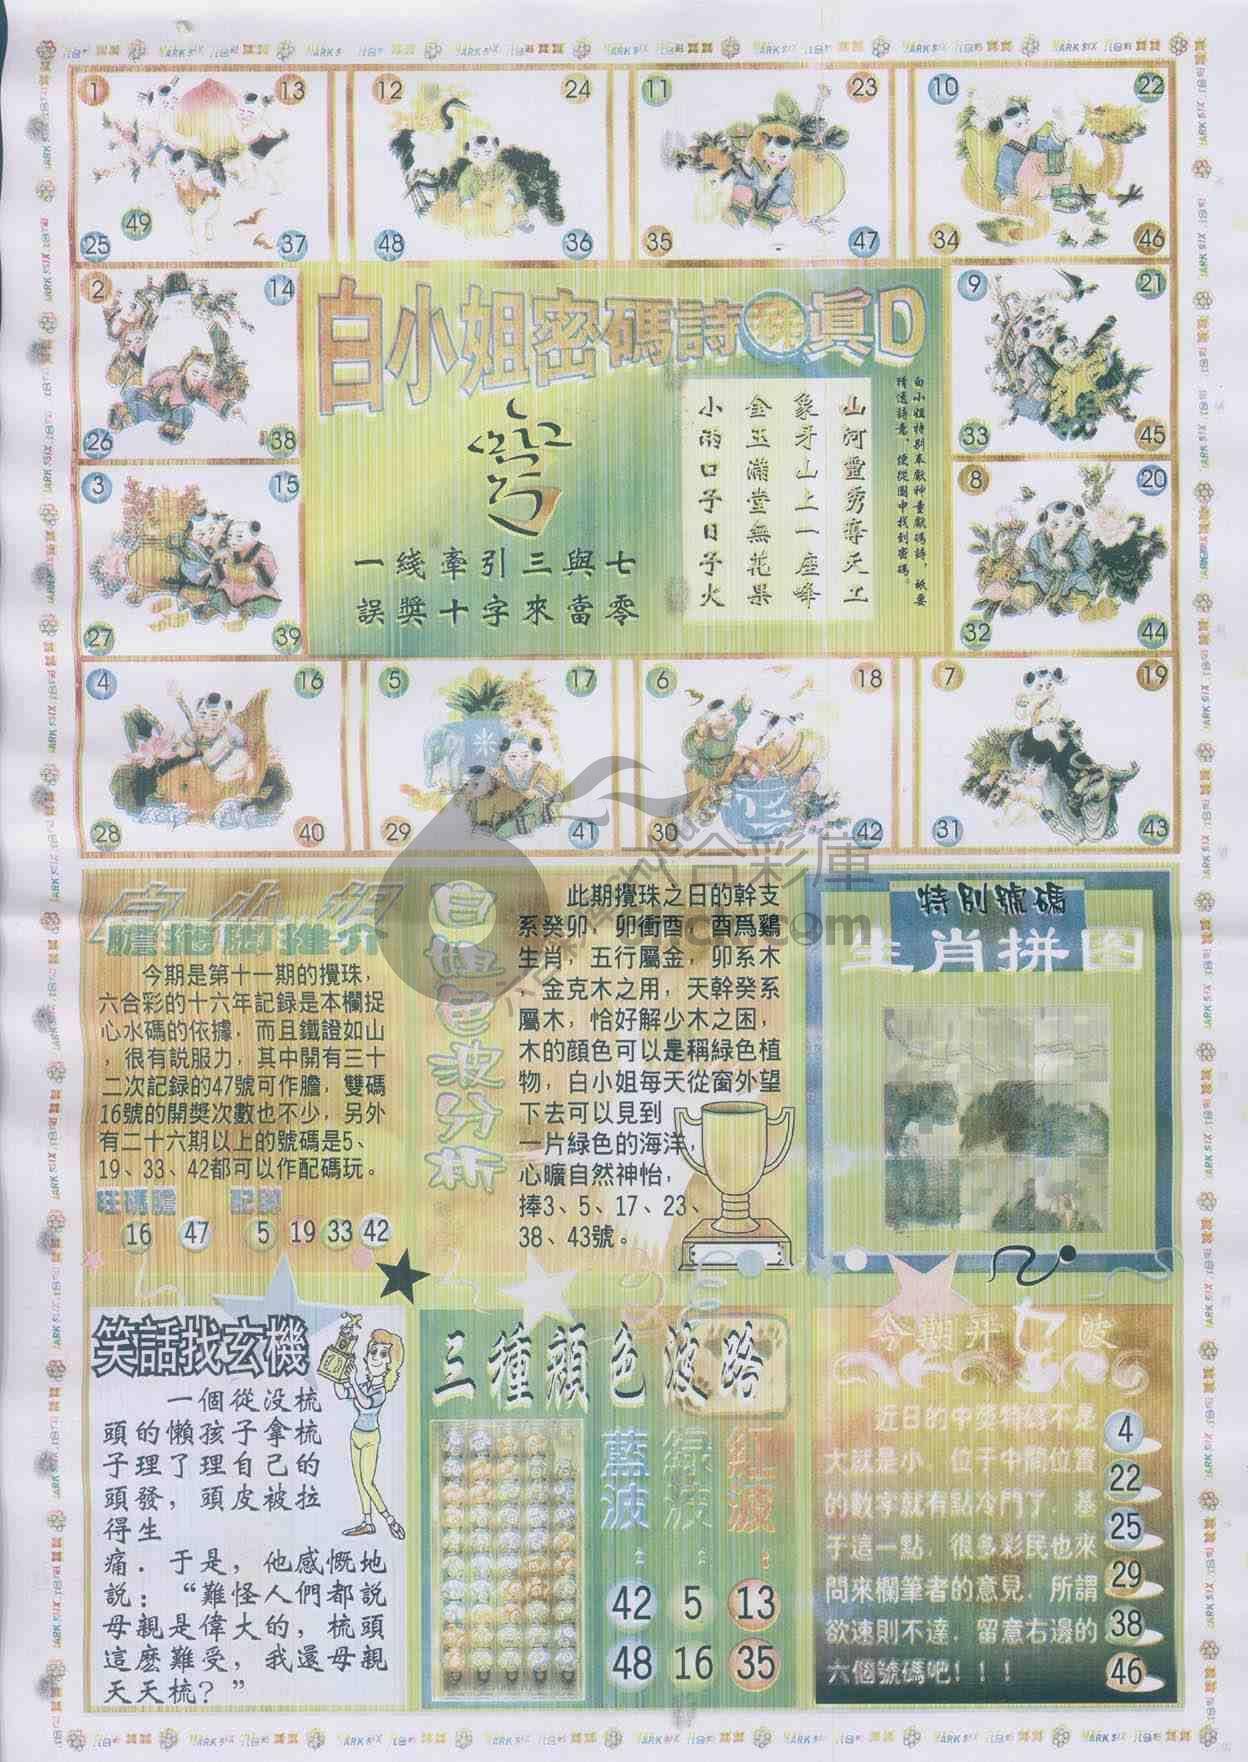 1 13
49
25 37
12 24
48 36
11 23
35 47
10 22
34 46
2 14
26 38
3 15
27 39
白小姐密碼詩 真D
山河靈秀奪天工
象牙山上一座峰
金玉滿堂無花果
小雨口子日子火
一綫牽引三與七
誤獎十字來當零
9 21
33 45
8 20
32 44
4 16
28 40
5 17
29 41
6 18
30 42
7 19
31 43
白小姐
今期是第十一期的攪珠，
六合彩的十六年記録是本欄捉
心水碼的依據，而且鐵證如山
，很有説服力，其中開有三十
二次記録的47號可作膽，雙碼
16號的開獎次數也不少，另外
有二十六期以上的號碼是5、
19、33、42都可以作配碼玩。
16 47 5 19 33 42
白姐色波分析
此期攪珠之日的幹支
系癸卯，卯衝酉，酉爲鷄
生肖，五行屬金，卯系木
，金克木之用，天幹癸系
屬木，恰好解少木之困，
木的顔色可以是稱緑色植
物，白小姐每天從窗外望
下去可以見到
一片緑色的海洋，
心曠自然神怡，
捧3、5、17、23、
38、43號。
特別號碼
生肖拼图
笑話找玄機
一個從没梳
頭的懶孩子拿梳
子理了理自己的
頭發，頭皮被拉
得生
痛．于是，他感慨地
説：“難怪人們都説
母親是偉大的，梳頭
這麽難受，我還母親
天天梳？”
三種顔色波路
藍波： 緑波： 紅波：
42 5 13
48 16 35
近日的中獎特碼不是
大就是小，位于中間位置
的數字就有點冷門了，基
于這一點，很多彩民也來
問來欄筆者的意見，所謂
欲速則不達，留意右邊的
六個號碼吧！！！
4
22
25
29
38
46